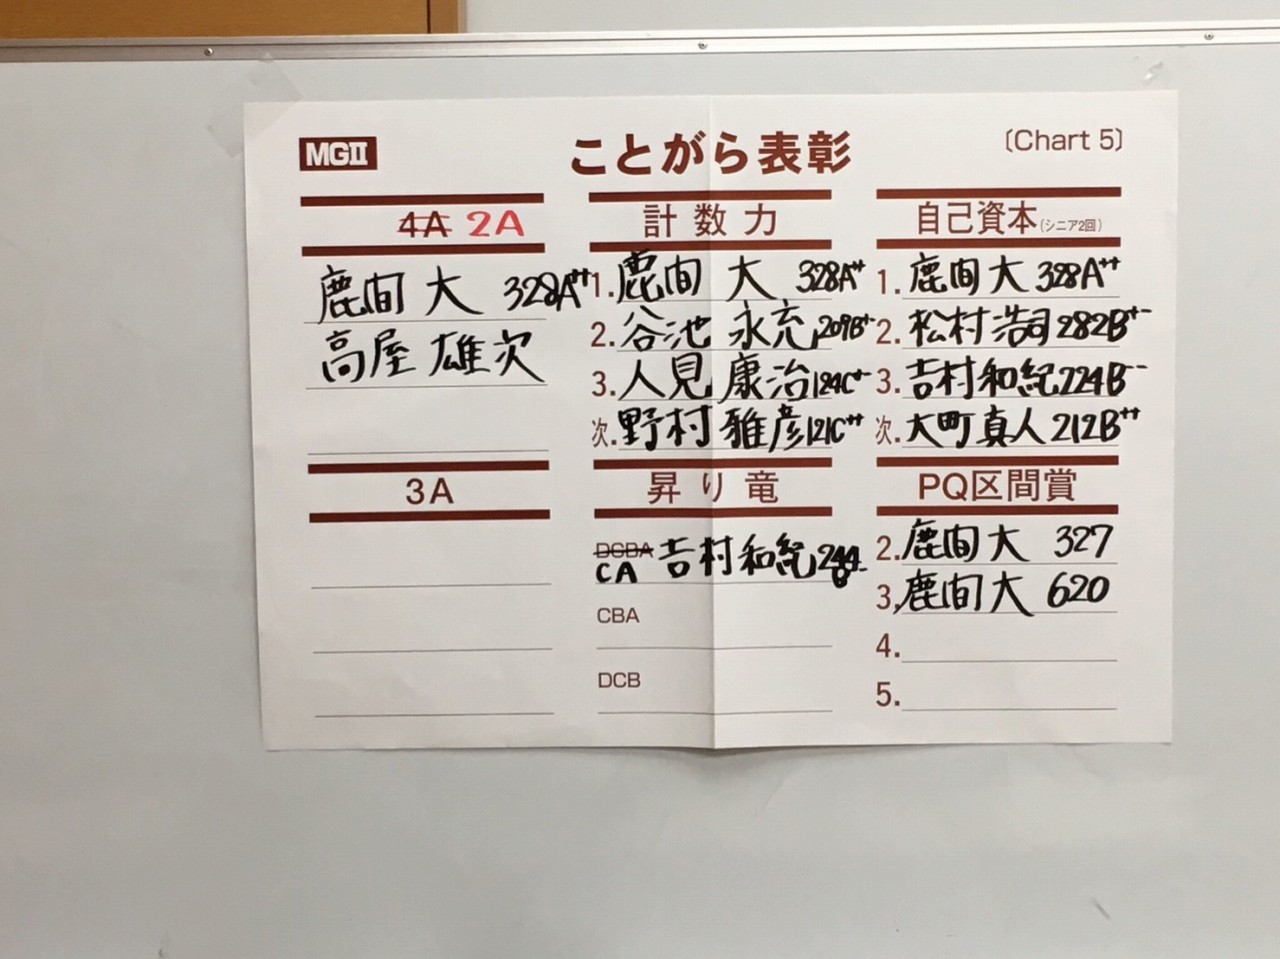 MGII
ことがら表彰
〔Chart 5〕
4A 2A
鹿間 大 328A++
高屋 雄次
3A
計数力
1. 鹿間 大 328A++
2. 谷池 永充 209B+-
3. 人見 康治 124C+-
次. 野村 雅彦 121C++
昇り竜
DCBA
CA 吉村 和紀
CBA
DCB
自己資本(シニア2回)
1. 鹿間 大 328A++
2. 松村 浩司 282B+-
3. 吉村 和紀 224B--
次. 大町 真人 212B++
PQ区間賞
2. 鹿間 大 327
3. 鹿間 大 620
4.
5.